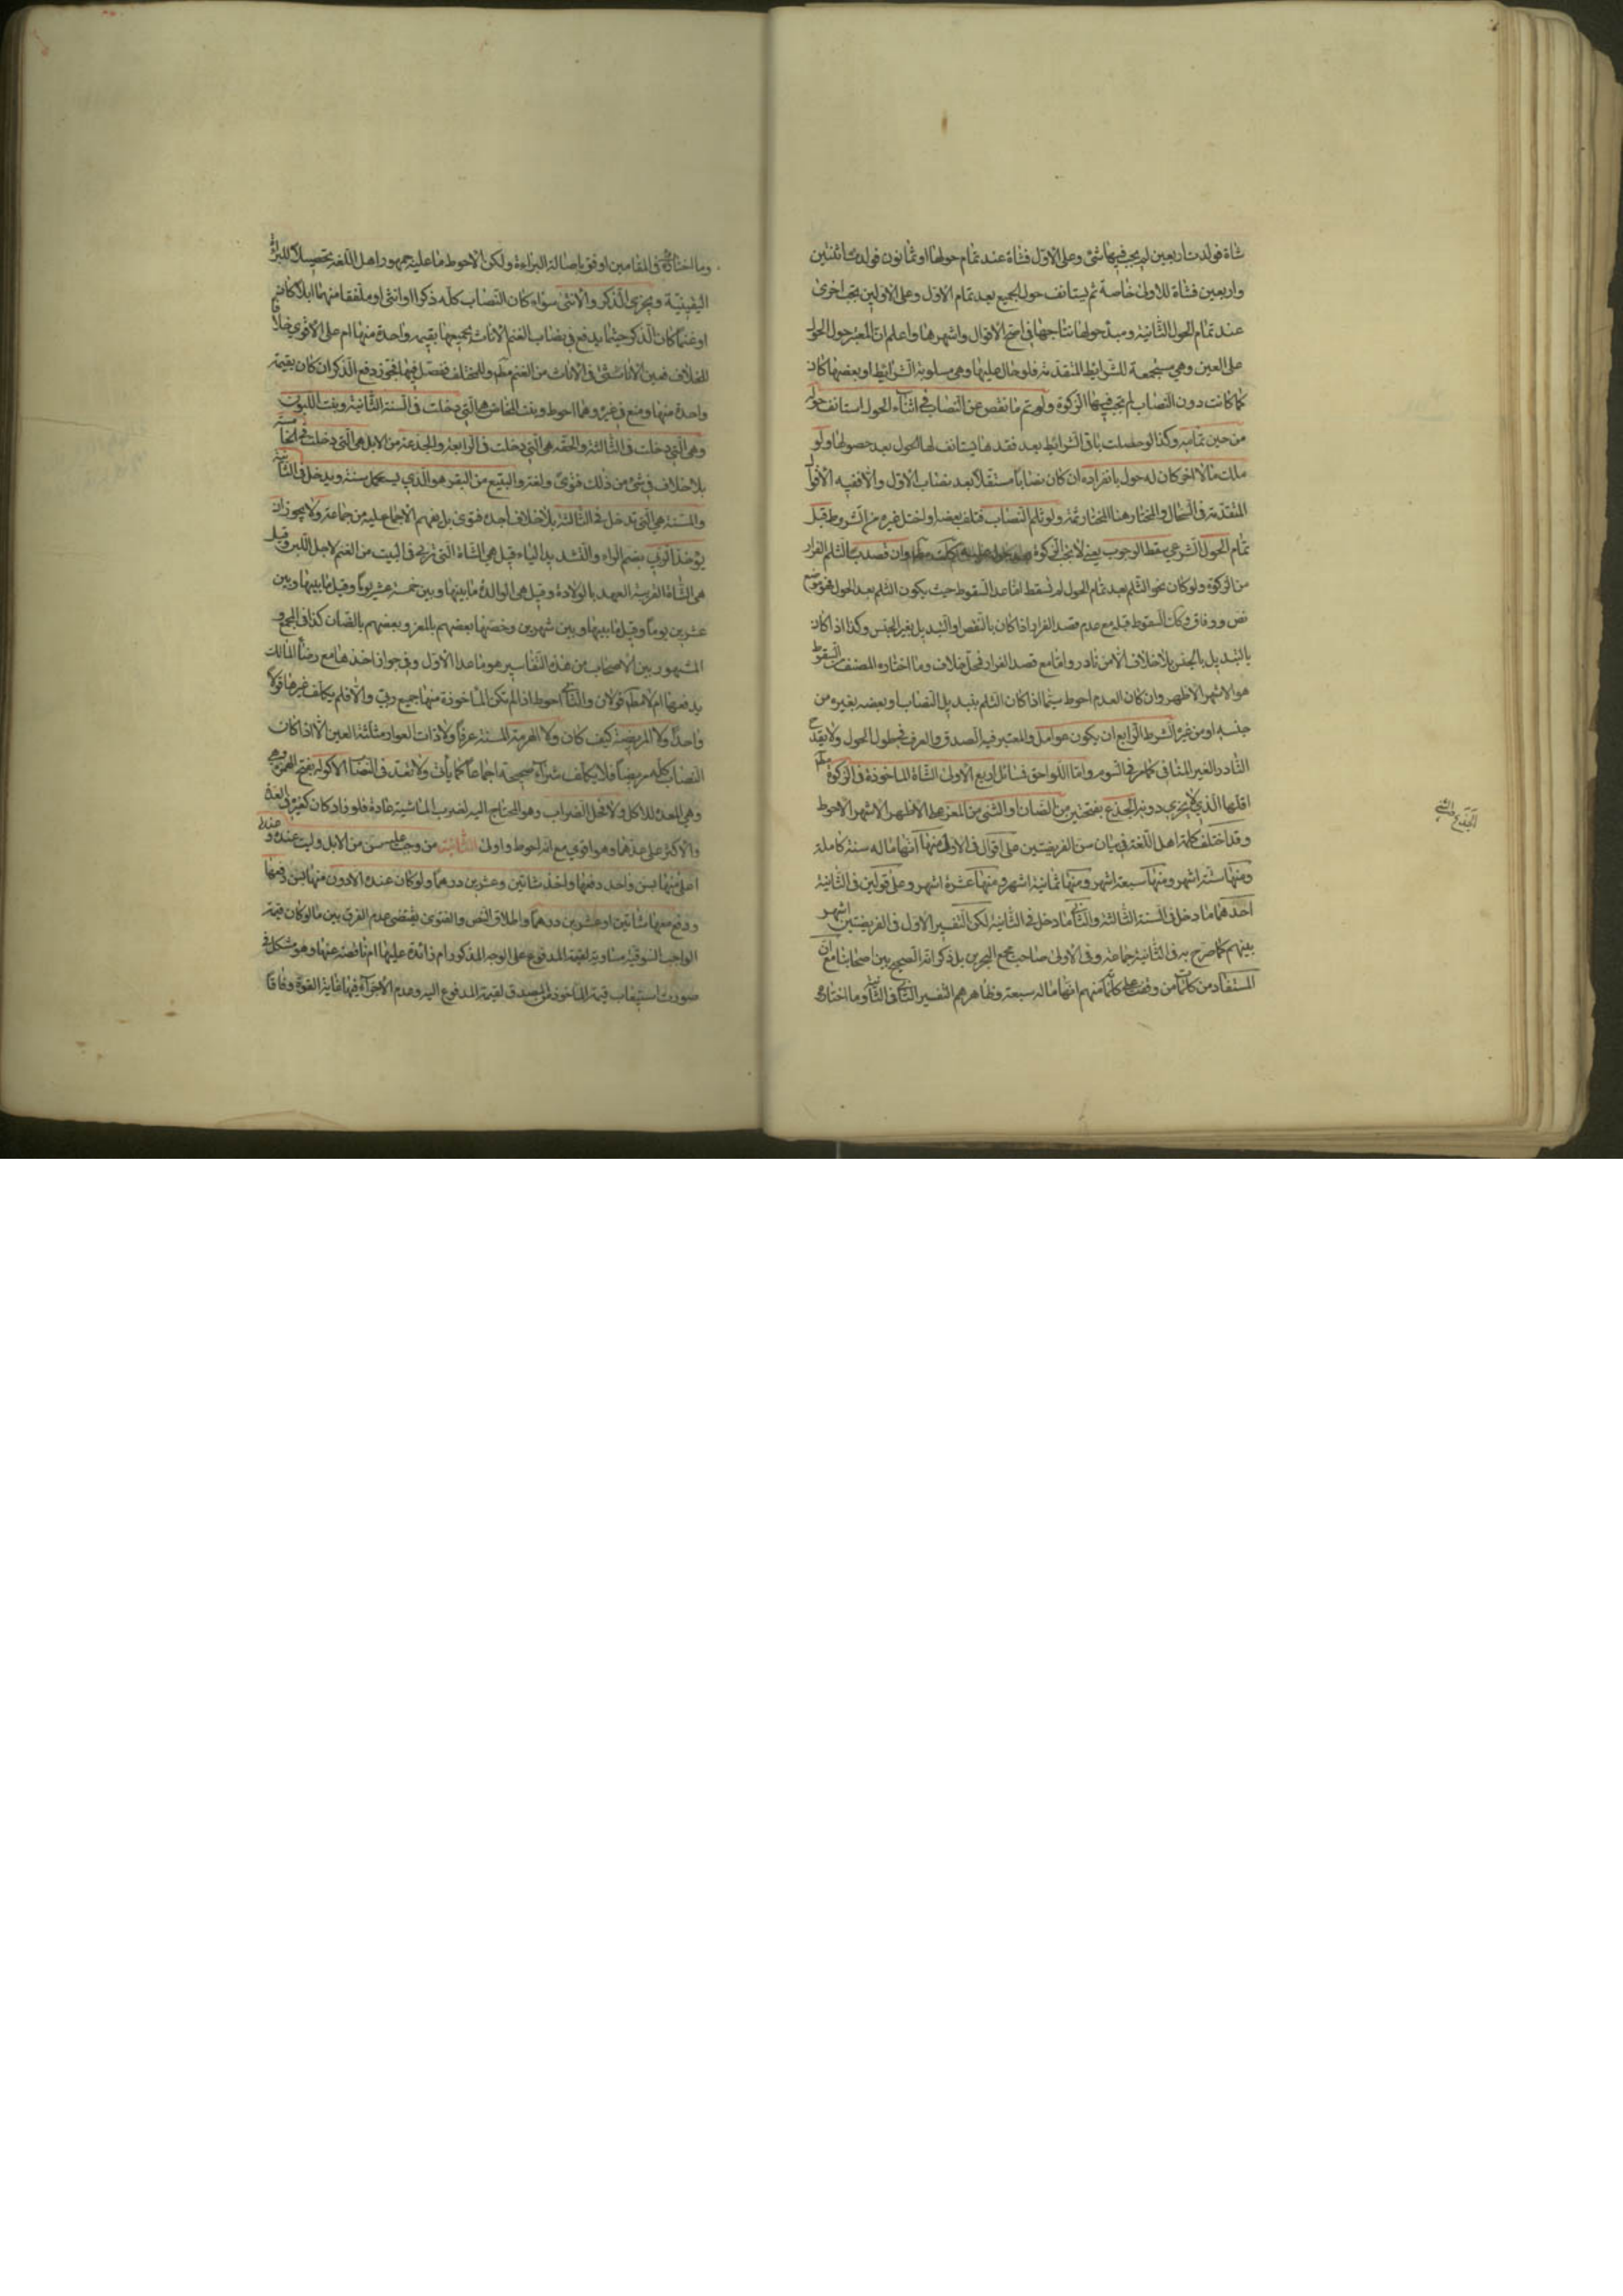 شاة فولدت اربعين لم يجب فيها شئ وعلى الاوّل فشاة عند تمام حولها او ثمانون فولدت اثنتين
واربعين فشاة للاولى خاصة ثم يستانف حول الجميع بعد تمام الاوّل وعلى الاولين تجب اخرى
عند تمام الحول الثانية ومبدأ حولها نتاجها في اصح الاقوال واشهرها واعلم ان المعتبر حول الحول
على العين وهي مستجمعة للشرائط المتقدمة فلو حال عليها وهي مسلوبة الشرائط او بعضها كان
كما كانت دون النصاب لم تجب فيها الزكوة ولو تم ما نقص عن النصاب في اثناء الحول استانف حوله
من حين تمامه وكذا لو حصلت باقي الشرائط بعد فقدها يستانف لها الحول بعد حصولها ولو
ملك مالا اخر كان له حول بانفراده ان كان نصابا مستقلا بعد نصاب الاوّل والا ففيه الاقوال
المتقدمة في السخال والمختار هنا المختار ثمة ولو ثلم النصاب فتلف بعضه او اختل غيره من الشروط قبل
تمام الحول الشرعي سقط الوجوب يعني لا تجب الزكوة وان قصد بالثلم الفرار
من الزكوة ولو كان نحو الثلم بعد تمام الحول لم تسقط اما عدا السقوط حيث يكون الثلم بعد الحول فموضع
نص ووفاق وكذا السقوط قبله مع عدم قصد الفرار اذا كان بالنقص او التبديل بغير الجنس وكذا اذا كان
بالتبديل بالجنس بلا خلاف الا من نادر واما مع قصد الفرار فمحل خلاف وما اختاره المصنف من السقوط
هو الاشهر الاظهر وان كان العدم احوط سيما اذا كان الثلم بتبديل النصاب او بعضه بغيره من
جنسه او من غيره الشرط الرابع ان يكون عوامل والمعتبر فيه الصدق والعرف في طول الحول ولا يقدح
النادر الغير المنافي كما مر في السوم واما اللواحق فمسائل اربع الاولى الشاة الماخوذة في الزكوة
اقلها الذي لا يجزي دونه الجذع بفتحتين من الضان او الثني من المعز على الاظهر الاشهر الاحوط
وقد اختلف كلمة اهل اللغة في بيان سن الفريضتين على اقوال في الاولى منها انها ما له سنة كاملة
ومنها ستة اشهر ومنها سبعة اشهر ومنها ثمانية اشهر ومنها عشرة اشهر وعلى قولين في الثانية
احدهما ما دخل في السنة الثالثة والثاني ما دخل في الثانية لكن التفسير الاول في الفريضتين اشهر
بينهم كما صرح به في الثانية جماعة وفي الاولى صاحب مجمع البحرين بل ذكر انه الصحيح بين اصحابنا مع ان
المستفاد من كلام من وقفت على كلامه منهم انها ما له سبعة وظاهرهم التفسير الثاني في الثانية وما اختاره
الجذع والثني
وما اختاره في المقامين اوفق باصالة البراءة ولكن الاحوط ما عليه جمهور اهل اللغة تحصيلا للبرائة
اليقينية ويجزي الذكر والانثى سواء كان النصاب كله ذكرا او انثى او ملفقا منهما ابلا كان ام
او غنما كان الذكر حيثما يدفع في نصاب الغنم الاناث بجميعها بقيمة واحدة منها ام على الاقوى خلافا
للخلاف فعين الاناث في الاناث من الغنم وللمختلف ففصل فيها فجوز دفع الذكر ان كان بقيمة
واحدة منها ومنع في غيره وهما احوط وبنت المخاض هي التي دخلت في السنة الثانية وبنت اللبون
وهي التي دخلت في الثالثة والحقة هي التي دخلت في الرابعة والجذعة من الابل هي التي دخلت في الخامسة
بلا خلاف في شئ من ذلك فتوى ولغة والتبيع من البقر هو الذي يستكمل سنة ويدخل في الثانية
والمسنة هي التي تدخل في الثالثة بلا خلاف اجده فتوى بل عليهم الاجماع عليه من جماعة ولا يجوز ان
يؤخذ الربى بضم الراء والتشديد الباء قيل هي الشاة التي تربى في البيت من الغنم لاجل اللبن وقيل
هي الشاة القريبة العهد بالولادة وقيل هي الوالدة ما بينها وبين خمسة عشر يوما وقيل ما بينها وبين
عشرين يوما وقيل ما بينها وبين شهرين وخصها بعضهم بالمعز وبعضهم بالضان كذا في المجمع و
المشهور بين الاصحاب من هذه التفاسير هو ما عدا الاول وفي جواز اخذها مع رضا المالك
بدفعها ام لا قولان والثاني احوط اذا لم تكن الماخوذة منها جميع ربى والا فلم يكلف غيرها قولا
واحدا ولا المريضة كيف كان ولا الهرمة المسنة عرفا ولا ذات العوار مثلثة العين الا اذا كان
النصاب كله مريضا فلا يكلف شراء صحيحة اجماعا كما ياتى ولا تعد في النصاب الاكولة بفتح الهمزة
وهي المعدة للاكل ولا فحل الضراب وهو المحتاج اليه لضرب الماشية عادة فلو زاد كان كغيره في العد
والاكثر على عدهما وهو اقوى مع انه احوط واولى الثانية من وجب عليه سن من الابل وليست عنده وعنده
اعلى منها بسن واحد دفعها واخذ شاتين او عشرين درهما ولو كان عنده الادون منها بسن دفعها
ودفع معها شاتين او عشرين درهما واطلاق النص والفتوى يقتضي عدم الفرق بين ما لو كان قيمة
الواجب السوقية مساوية لقيمة المدفوع على الوجه المذكور ام زائدة عليها ام ناقصة عنها وهو مشكل في
صورة استيعاب قيمة الماخوذ من المصدق لقيمة المدفوع اليه وعدم الاجزاء فيها غاية القوة وفاقا